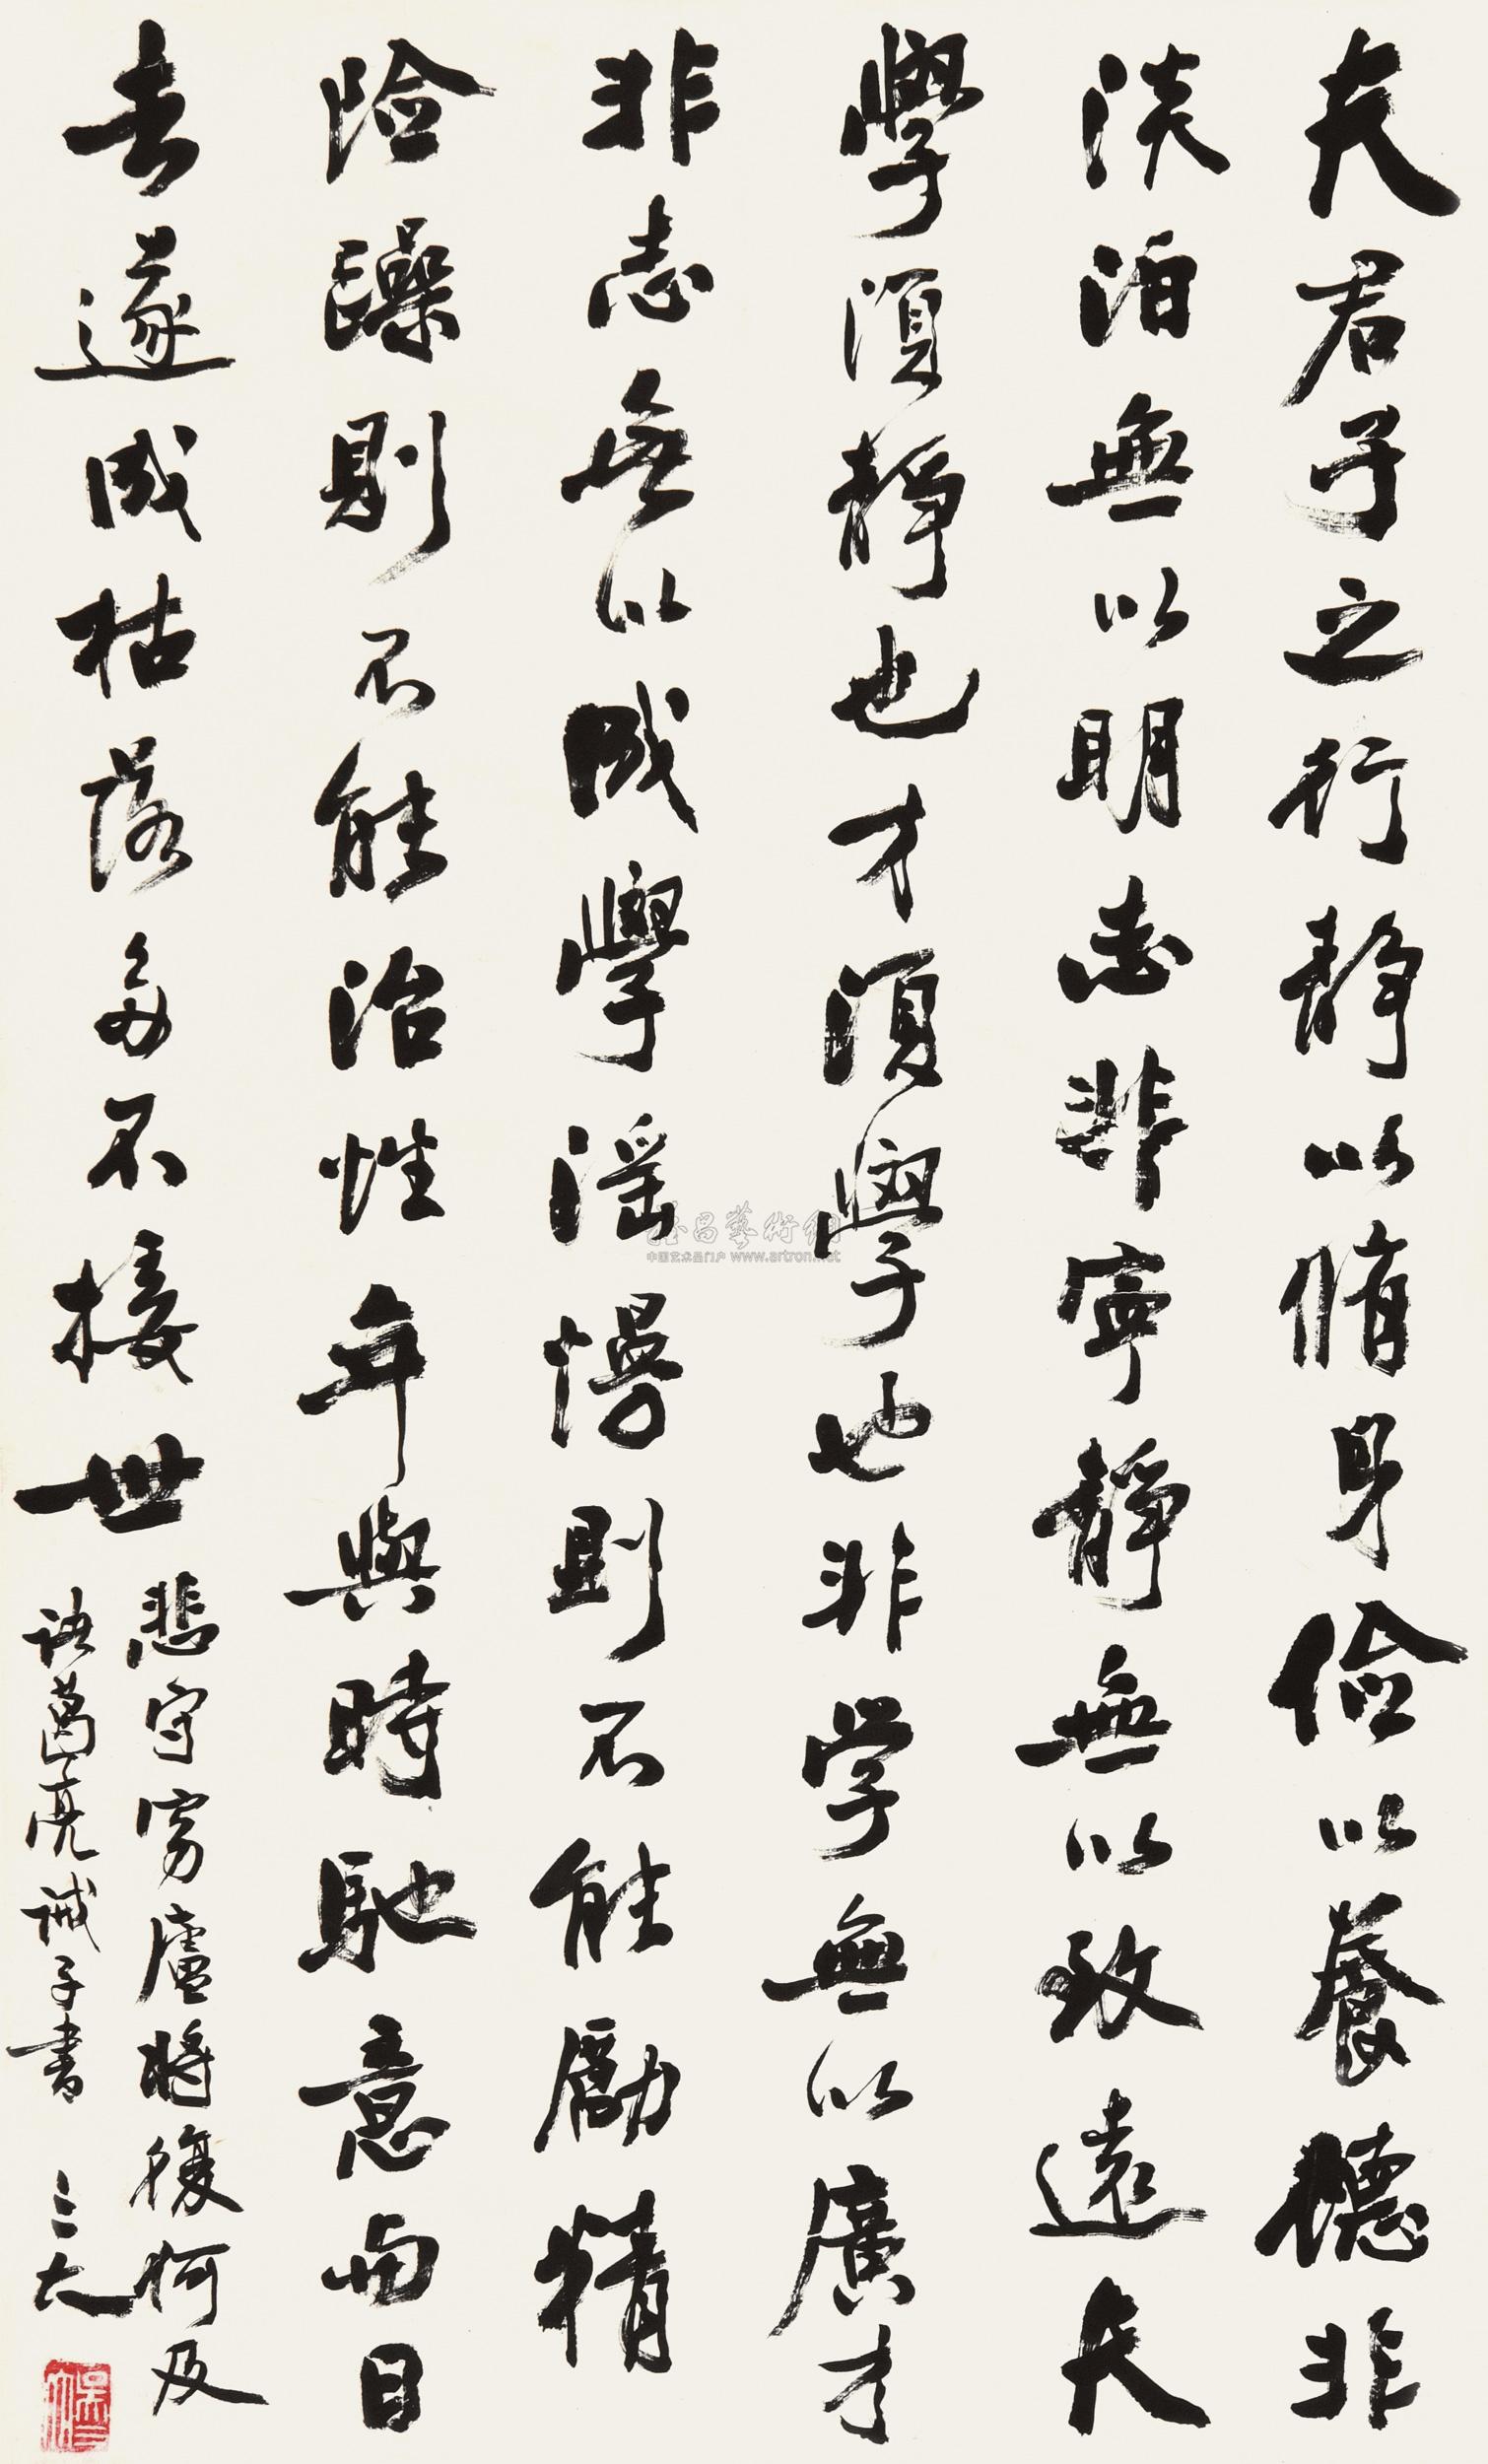 夫君子之行靜以脩身儉以養德非
淡泊無以明志非寧靜無以致遠夫
學須靜也才須學也非学無以廣才
非志無以成學滛慢則不能勵精
險躁則不能治性年與時馳意与日
去遂成枯落多不接世
悲守窮廬將復何及
諸葛亮誡子書 三大
雅昌藝術網
中国艺术品门户 www.artron.net